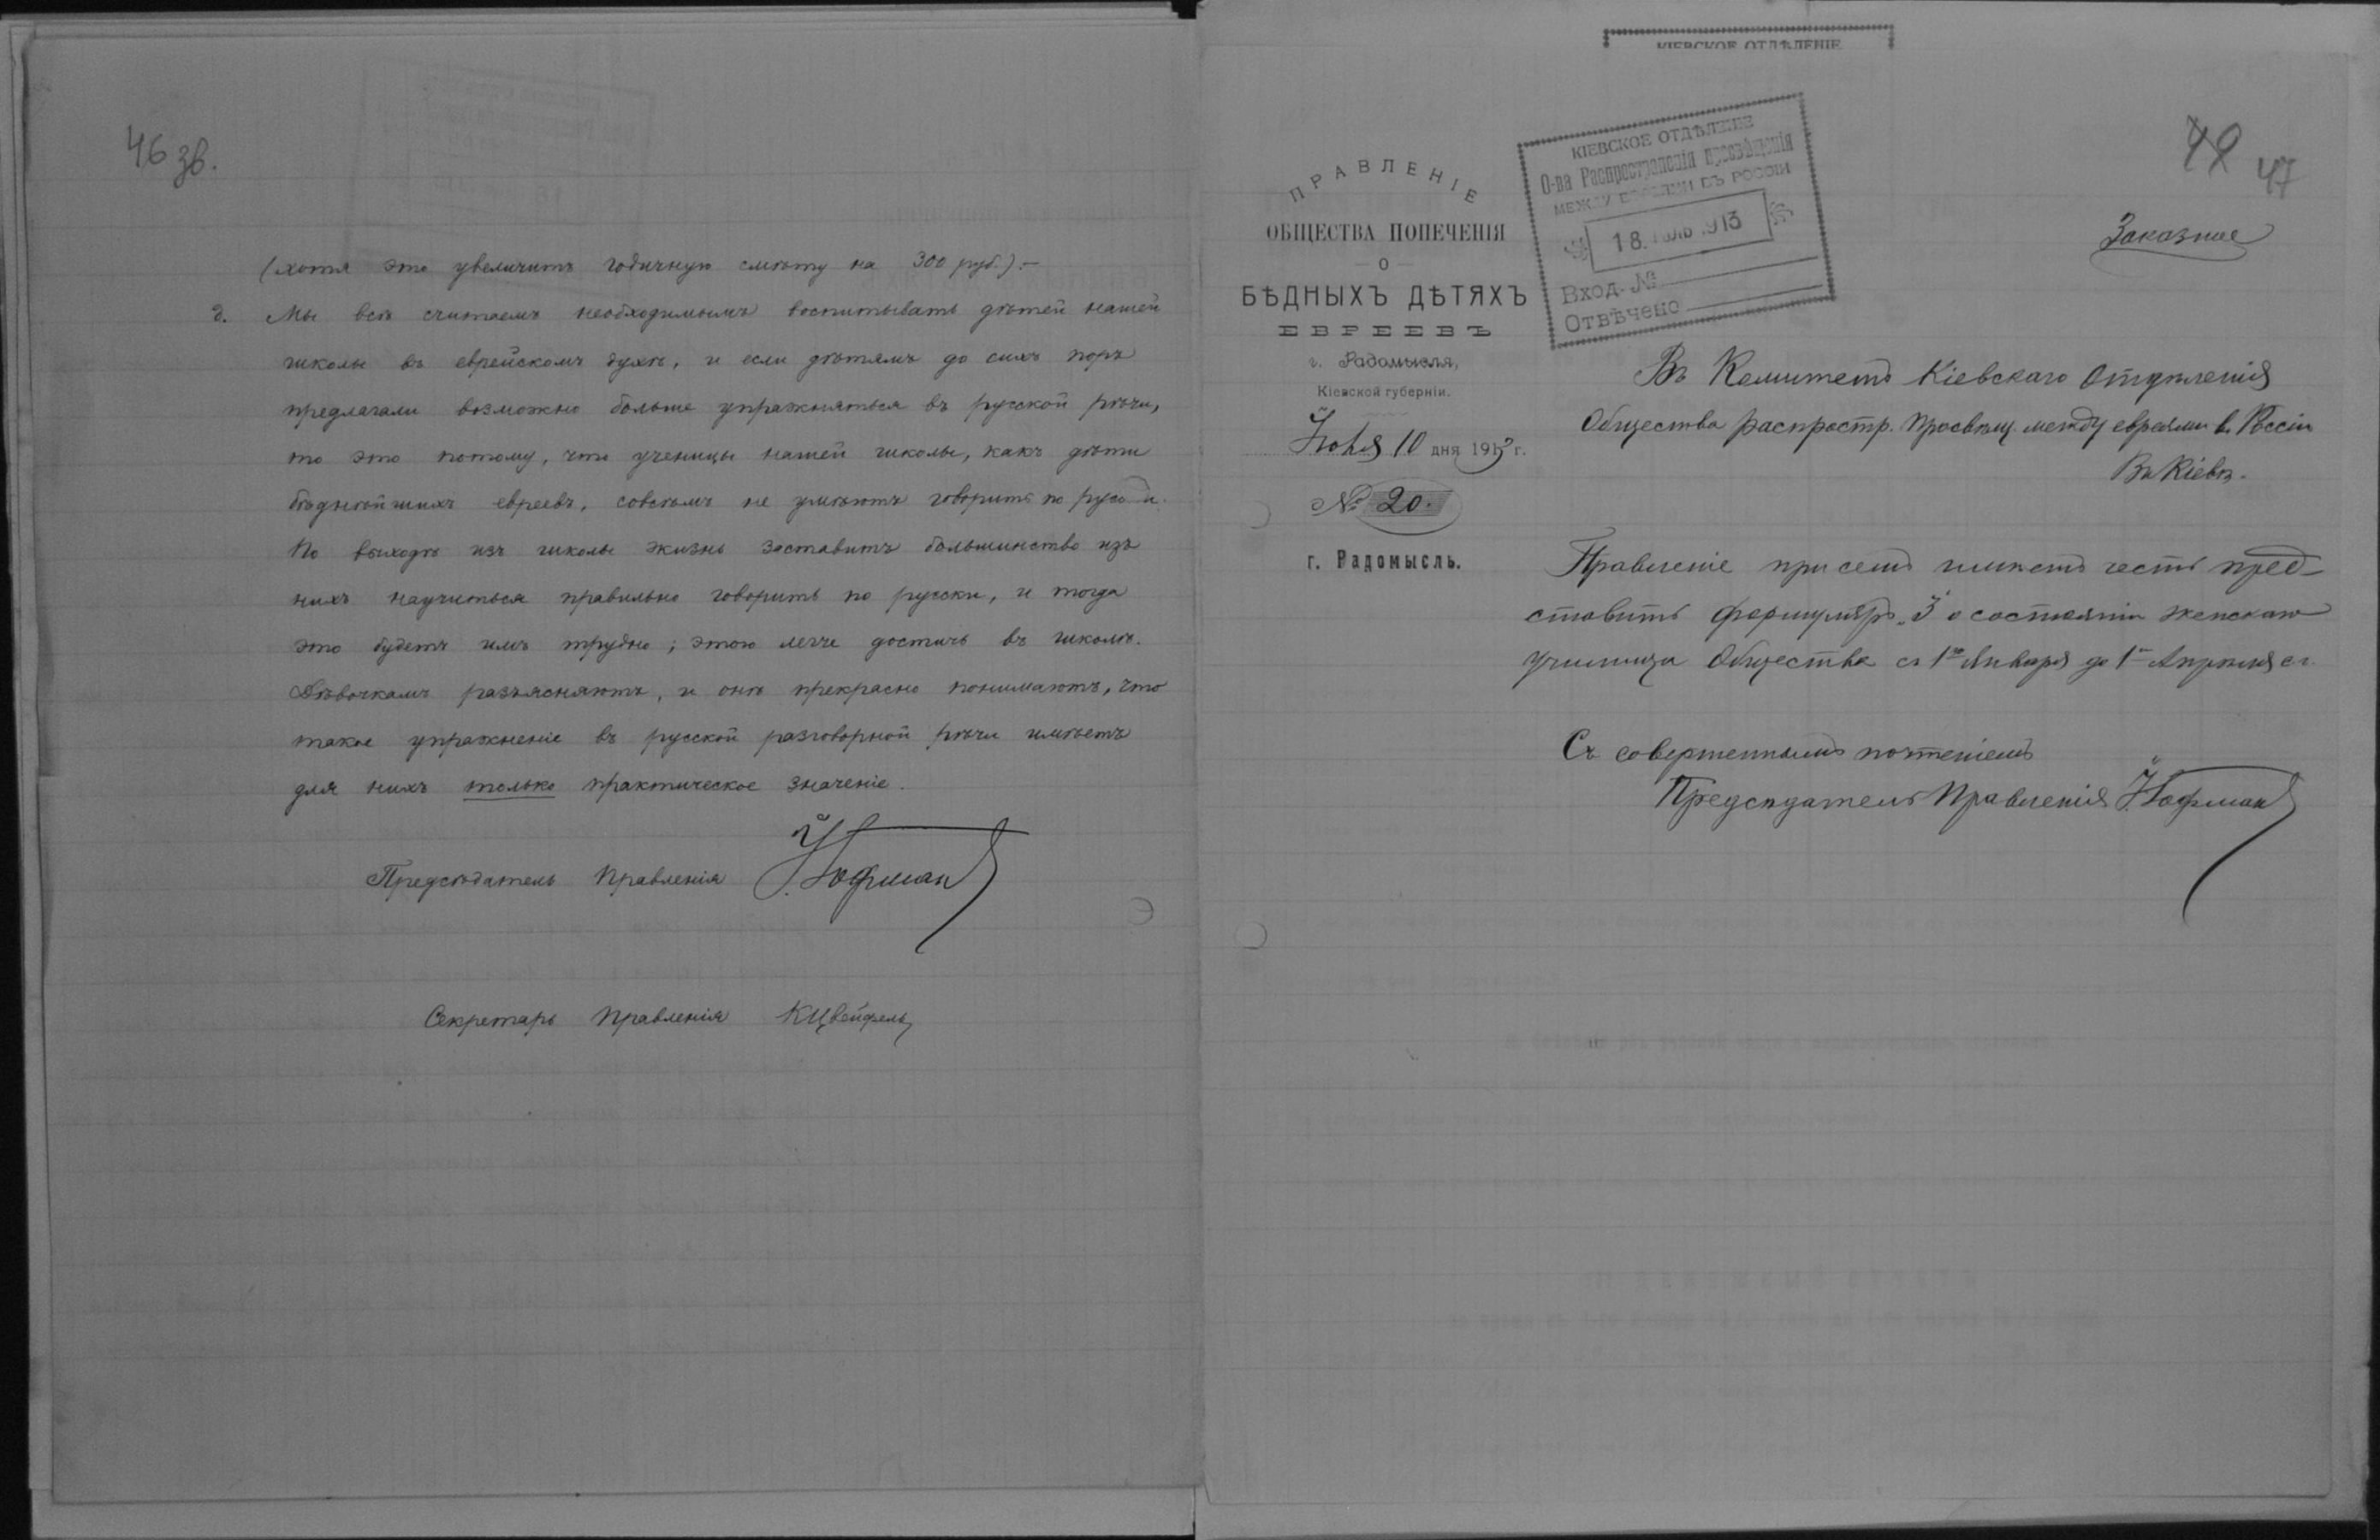 46 зв.
(хотя это увеличитъ годичную смѣту на 300 руб.).-
д. Мы всѣ считаемъ необходимымъ воспитывать дѣтей нашей
школы въ еврейскомъ духѣ, и если дѣтямъ до сихъ поръ
предлагали возможно больше упражняться въ русской рѣчи,
то это потому, что ученицы нашей школы, какъ дѣти
бѣднѣйшихъ евреевъ, совсѣмъ не умѣютъ говорить по русски.
По выходѣ изъ школы жизнь заставитъ большинство изъ
нихъ научиться правильно говорить по русски, и тогда
это будетъ имъ трудно; этого легче достичь въ школѣ.
Дѣвочкамъ разъясняютъ, и онѣ прекрасно понимаютъ, что
такое упражненіе въ русской разговорной рѣчи имѣетъ
для нихъ только практическое значеніе.
Предсѣдатель Правленія Гофман
Секретарь Правленія КЦвейфель
КІЕВСКОЕ ОТДѢЛЕНІЕ
47
Заказное
ПРАВЛЕНІЕ
ОБЩЕСТВА ПОПЕЧЕНІЯ
О
БѢДНЫХЪ ДѢТЯХЪ
ЕВРЕЕВЪ
г. Радомысля,
Кіевской губерніи.
10 дня 1913 г.
№ 20.
г. Радомысль.
КІЕВСКОЕ ОТДѢЛЕНІЕ
О-ва Распространенія просвѣщенія
МЕЖДУ ЕВРЕЯМИ ВЪ РОССІИ
18. 1913
Вход. №
Отвѣчено
Въ Комитетъ Кіевскаго Отдѣленія
Общества распростр. просвѣщ. между евреями в. Россіи
Въ Кіевѣ.
Правленіе при семъ имѣетъ честь пред-
ставить формуляръ „3“ о состояніи женскаго
училища Общества съ 1го Января до 1 Апрѣля с. г.
Съ совершеннымъ почтеніемъ
Предсѣдатель Правленія Гофман